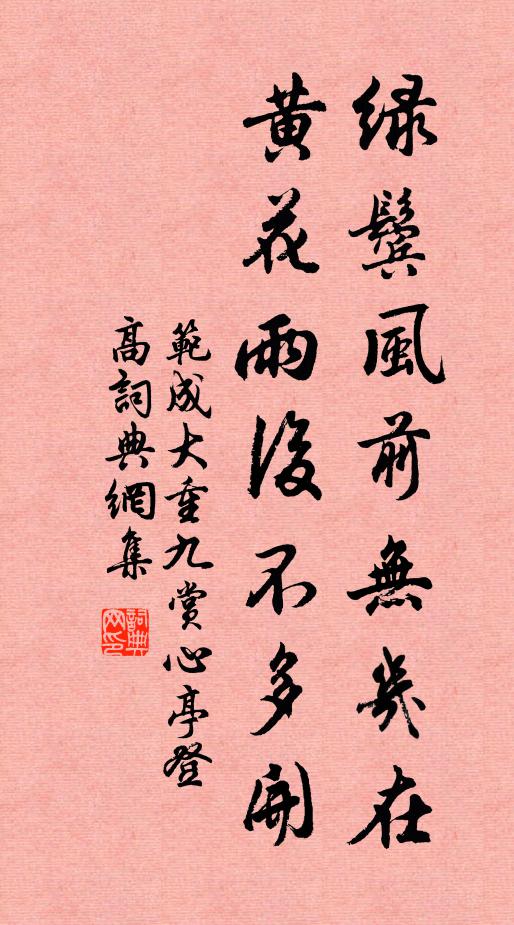 緑鬢風前無幾在
黃花雨後不多開
範成大重九賞心亭登
高詞典網集
詞典
网印